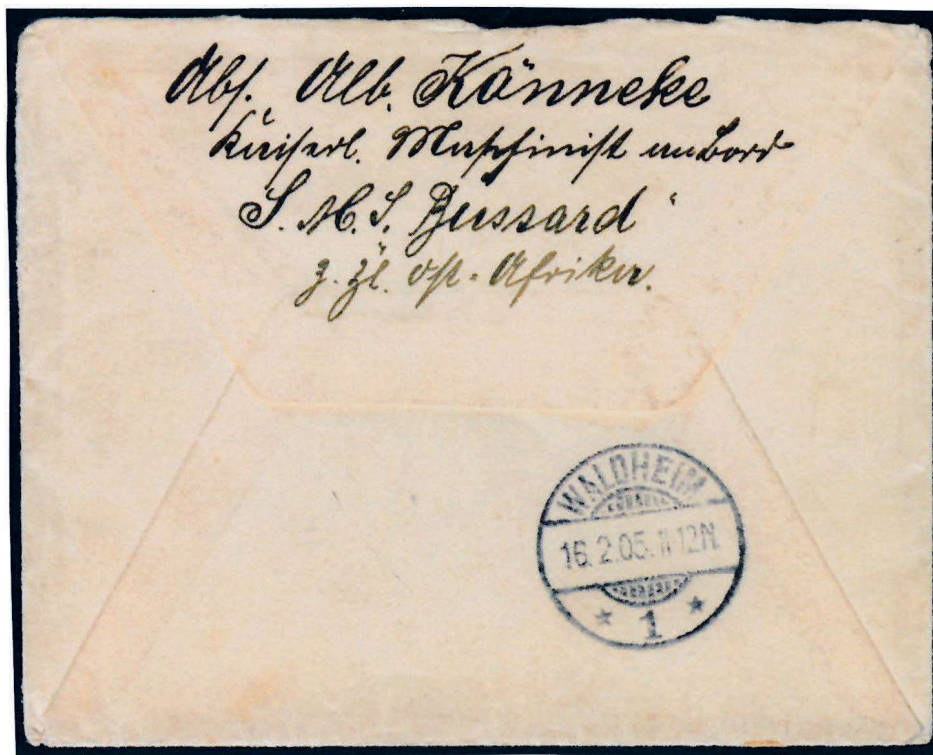 Abs. Alb. Könneke
Kaiserl. Maschinist an Bord
S.M.S. Bussard"
z. Zt. Ost-Afrika.
WALDHEIM
16. 2.05. 11-12N.
* 1 *